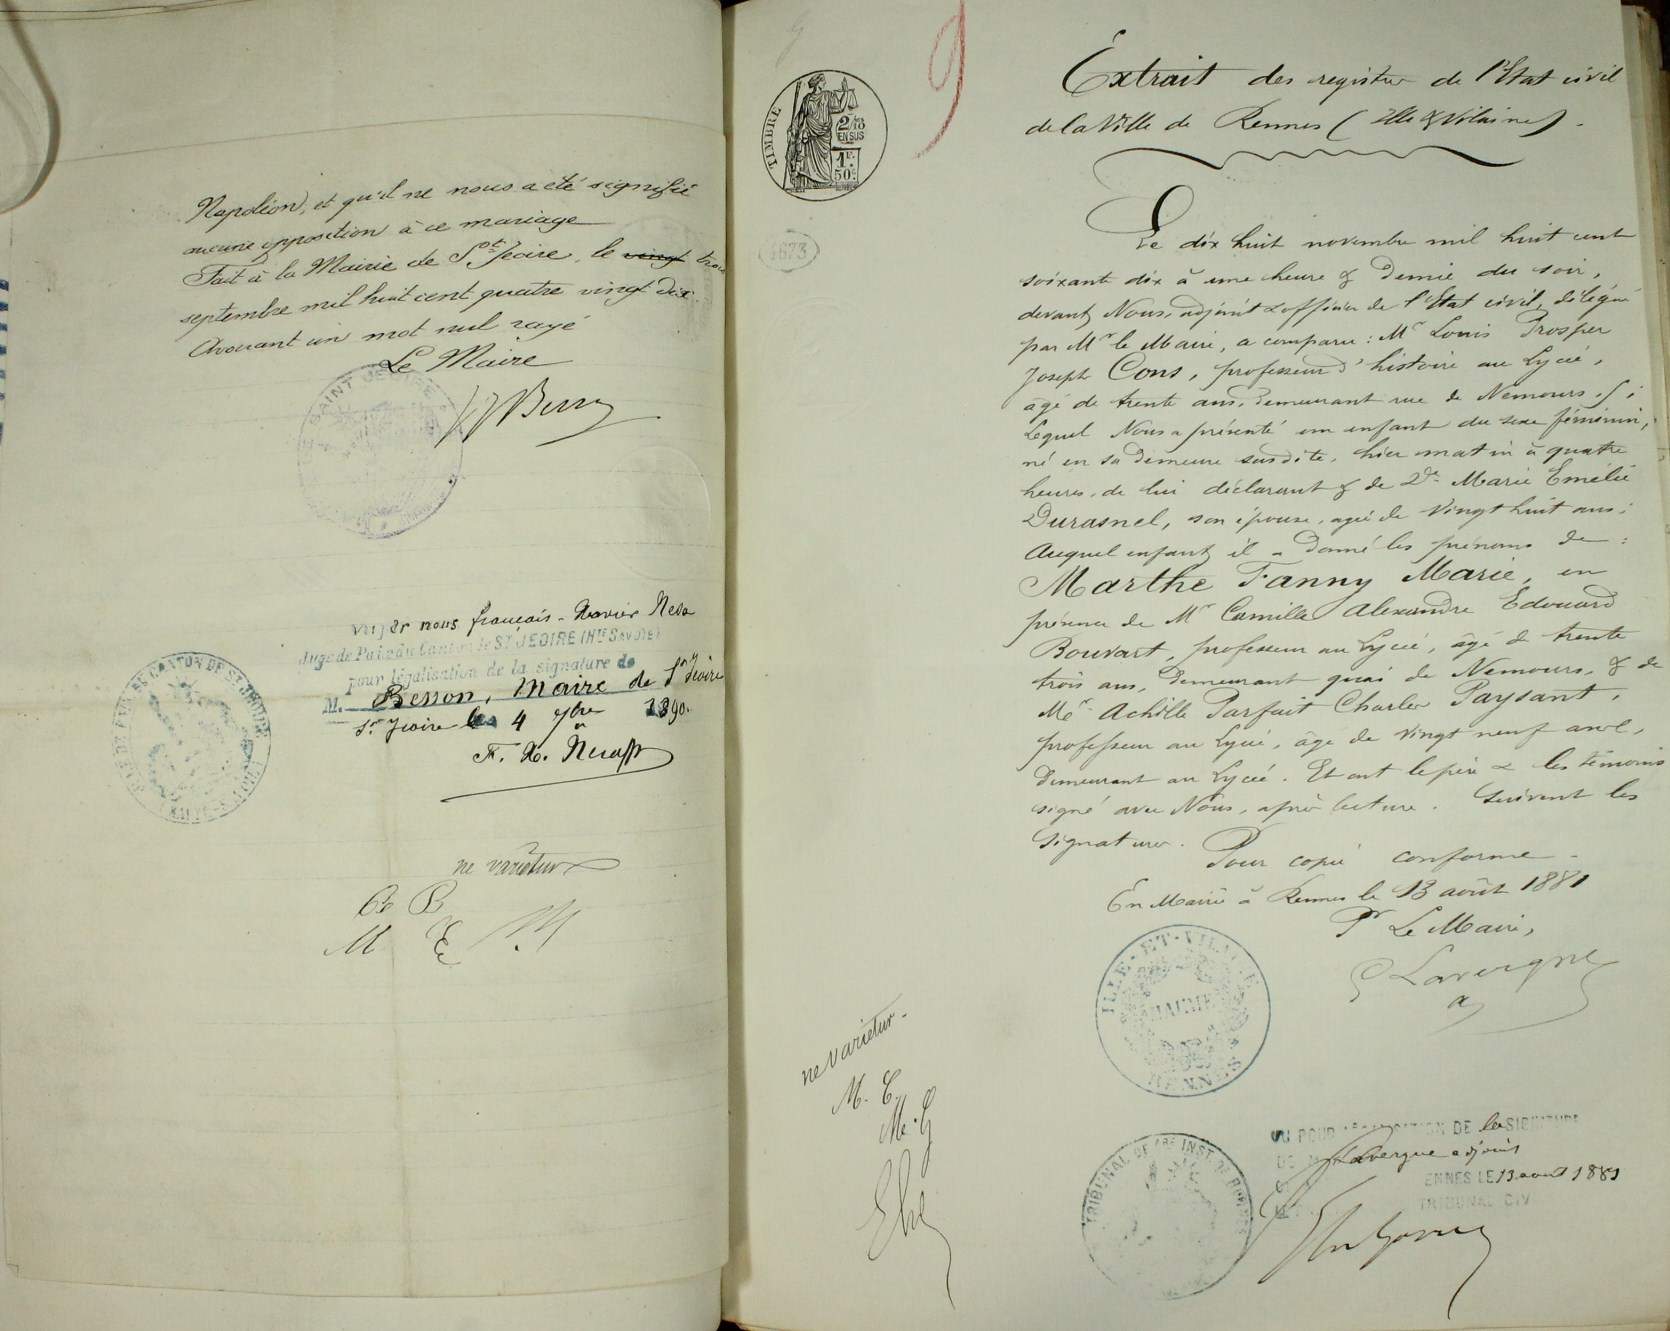 Napoléon, et qu'il ne nous a été signifié
aucune opposition à ce mariage
Fait à la Mairie de St Jeoire, le vingt trois
septembre mil huit cent quatre vingt dix.
Avouant un mot nul rayé
Le Maire
Vu par nous françois-Xavier
Juge de Paix du Canton de ST JEOIRE (Hte SAVOIE)
pour légalisation de la signature de
M. Besson, Maire de St Jeoire
St Jeoire le 4 7bre 1890.
JUGE DE PAIX DU CANTON DE ST JEOIRE
HAUTE-SAVOIE
ne varietur
TIMBRE
2/10
EN SUS
1F
50c
4673
9
Extrait des registres de l'Etat civil
de la Ville de Rennes (Ille & Vilaine).
Le dix huit novembre mil huit cent
soixante dix à une heure & demie du soir,
devant Nous, adjoint & officier de l'Etat civil, délégué
par Mr le Maire, a comparu : Mr Louis Prosper
Joseph Cons, professeur d'histoire au Lycée,
âgé de trente ans, demeurant rue de Nemours
Lequel Nous a présenté un enfant du sexe féminin,
né en sa demeure susdite, hier matin à quatre
heures, de lui déclarant & de De Marie Emélie
Durasnel, son épouse, agée de Vingt huit ans;
Auquel enfant il a donné les prénoms de :
Marthe Fanny Marie, en
présence de Mr Camille Alexandre Edouard
Bouvart, professeur au Lycée, âgé de trente
trois ans, demeurant quai de Nemours, & de
Mr Achille Parfait Charles Paysant,
professeur au Lycée, âgé de vingt neuf ans,
demeurant au Lycée. Et ont le père & les témoins
signé avec Nous, après lecture. Suivent les
signatures. Pour copie conforme.
En Mairie à Rennes le 13 août 1881
Pr Le Maire,
Lavergne
a
ILLE-ET-VILAINE
MAIRIE
RENNES
ne varietur.
M. C.
M. G
TRIBUNAL DE 1ERE INST. DE RENNES
VU POUR LÉGALISATION DE la SIGNATURE
DE M. Lavergne adjoint
RENNES LE 13 août 1881
TRIBUNAL CIV